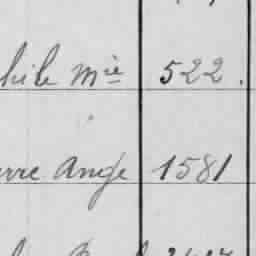 hile Mie 522.
erre Ange 1581